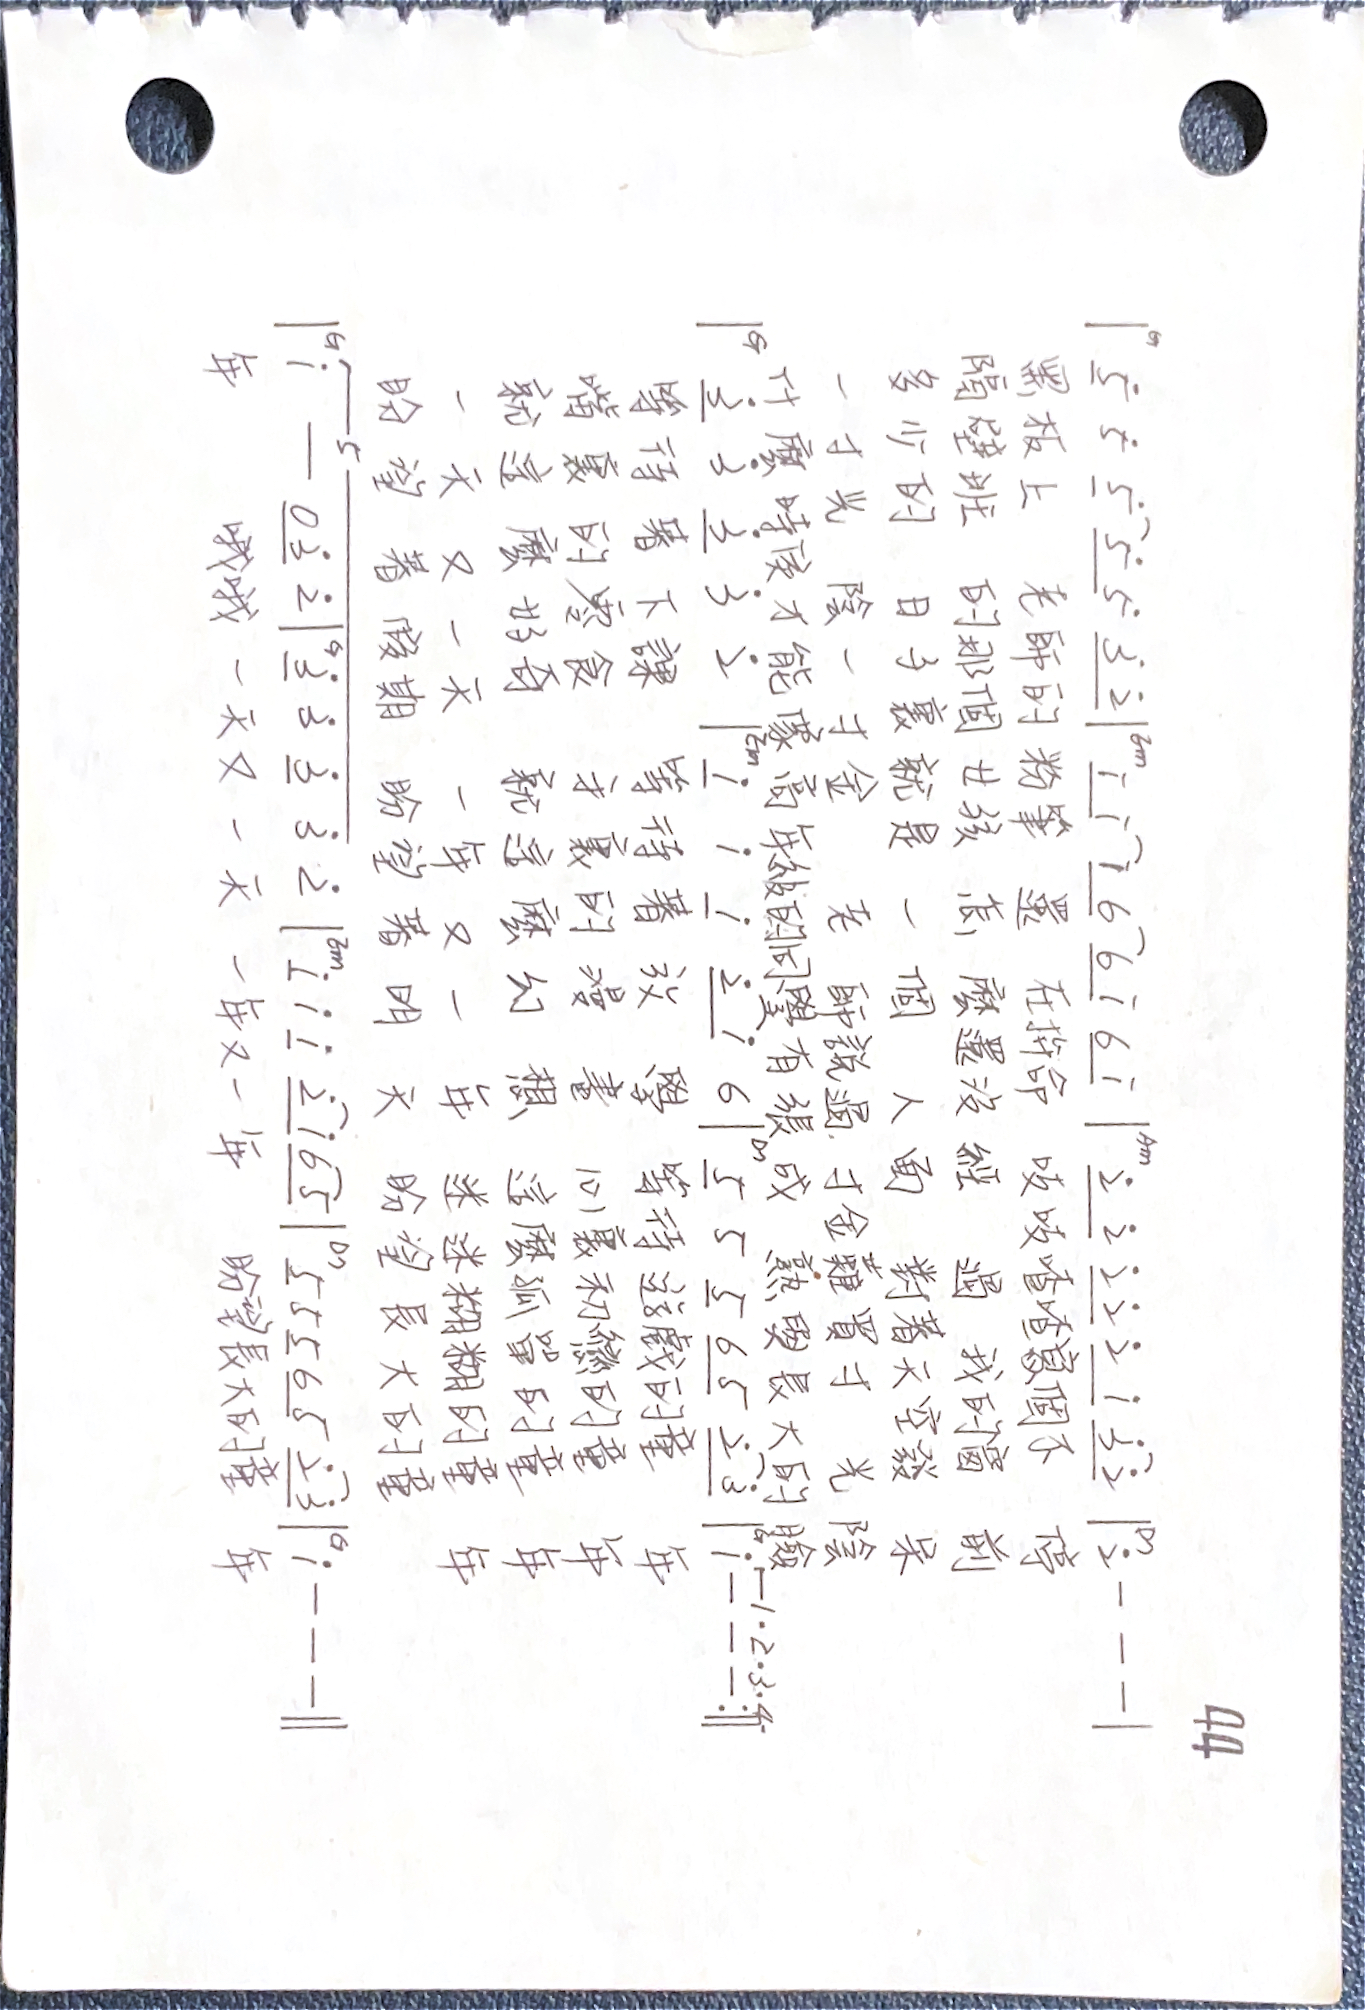 44
|G 5 5 5 5 5 3 2 |Em i i i 6 6 i 6 i |Am 2 2 2 2 2 i 3 2 |D7 2 — — — |
黑板上 老師的粉筆 還 在拚命 吱吱喳喳寫個不 停
隔壁班 的那個女孩 怎 麼還沒經 過 我的窗 前
多少的 日子裏就是 一 個 人面 對著天空發 呆
一寸光 陰一寸金 老 師說過 寸金難買寸 光 陰
什麼時候才能像高年級的同學有張成 熟與長大的臉
|G 3 3 3 3 2 |Em i i i 2 i 6 |D7 5 5 5 6 5 2 3 |G i — — — :|| 1.2.3.4.
等待著下課 等待著放 學 等待遊戲的童 年
嘴裏的零食 手裏的漫 畫 心裏初戀的童 年
就這麼好奇 就這麼幻 想 這麼孤單的童 年
一天又一天 一年又一 年 迷迷糊糊的童 年
盼望著假期 盼望著明 天 盼望長大的童
|G i — 0 3 2 |G 3 3 3 3 2 |Em i i i 2 i 6 5 |D7 5 5 5 6 5 2 3 |G i — — — || 5
年 哦哦 一天又一天 一年又一年 盼望長大的童 年